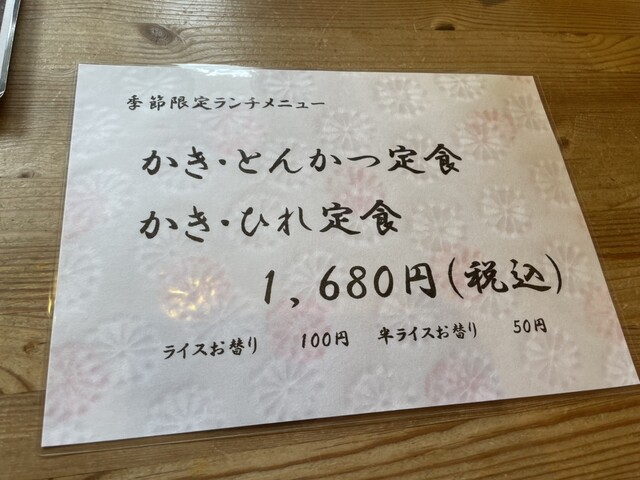 季節限定ランチメニュー
かき・とんかつ定食
かき・ひれ定食
1,680円(税込)
ライスお替り 100円 半ライスお替り 50円